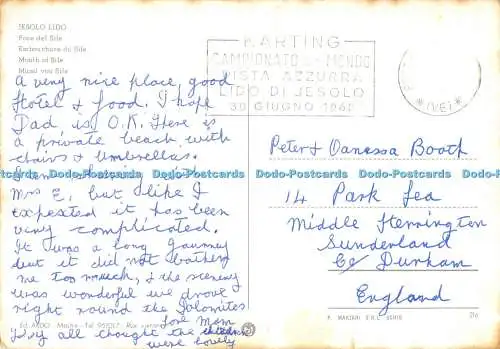 JESOLO LIDO
Foce del Sile
Embouchure du Sile
Mouth of Sile
Münd von Sile
A very nice place, good
Hotel & food. I hope
Dad, is O.K. There is
a private beach with
chairs & umbrellas.
Mrs E, but like I
expected it has been
very complicated.
It was a long journey
but it did not bother
me too much, & the scenery
was wonderful we drove
right round the Dolomites
love Mom
all thought the
were lovely
KARTING
CAMPIONATO DEL MONDO
PISTA AZZURRA
LIDO DI JESOLO
30 GIUGNO 196
*(VE)*
Peter & Vanessa Booth
14 Park Lea
Middle Herrington
Sunderland
Co/ Durham
England
Dodo-Postcards Dodo-Postcards Dodo-Postcards Dodo-Postcards Dodo-Postcards
Ed. ARDO - Mestre - Tel. 951017
216